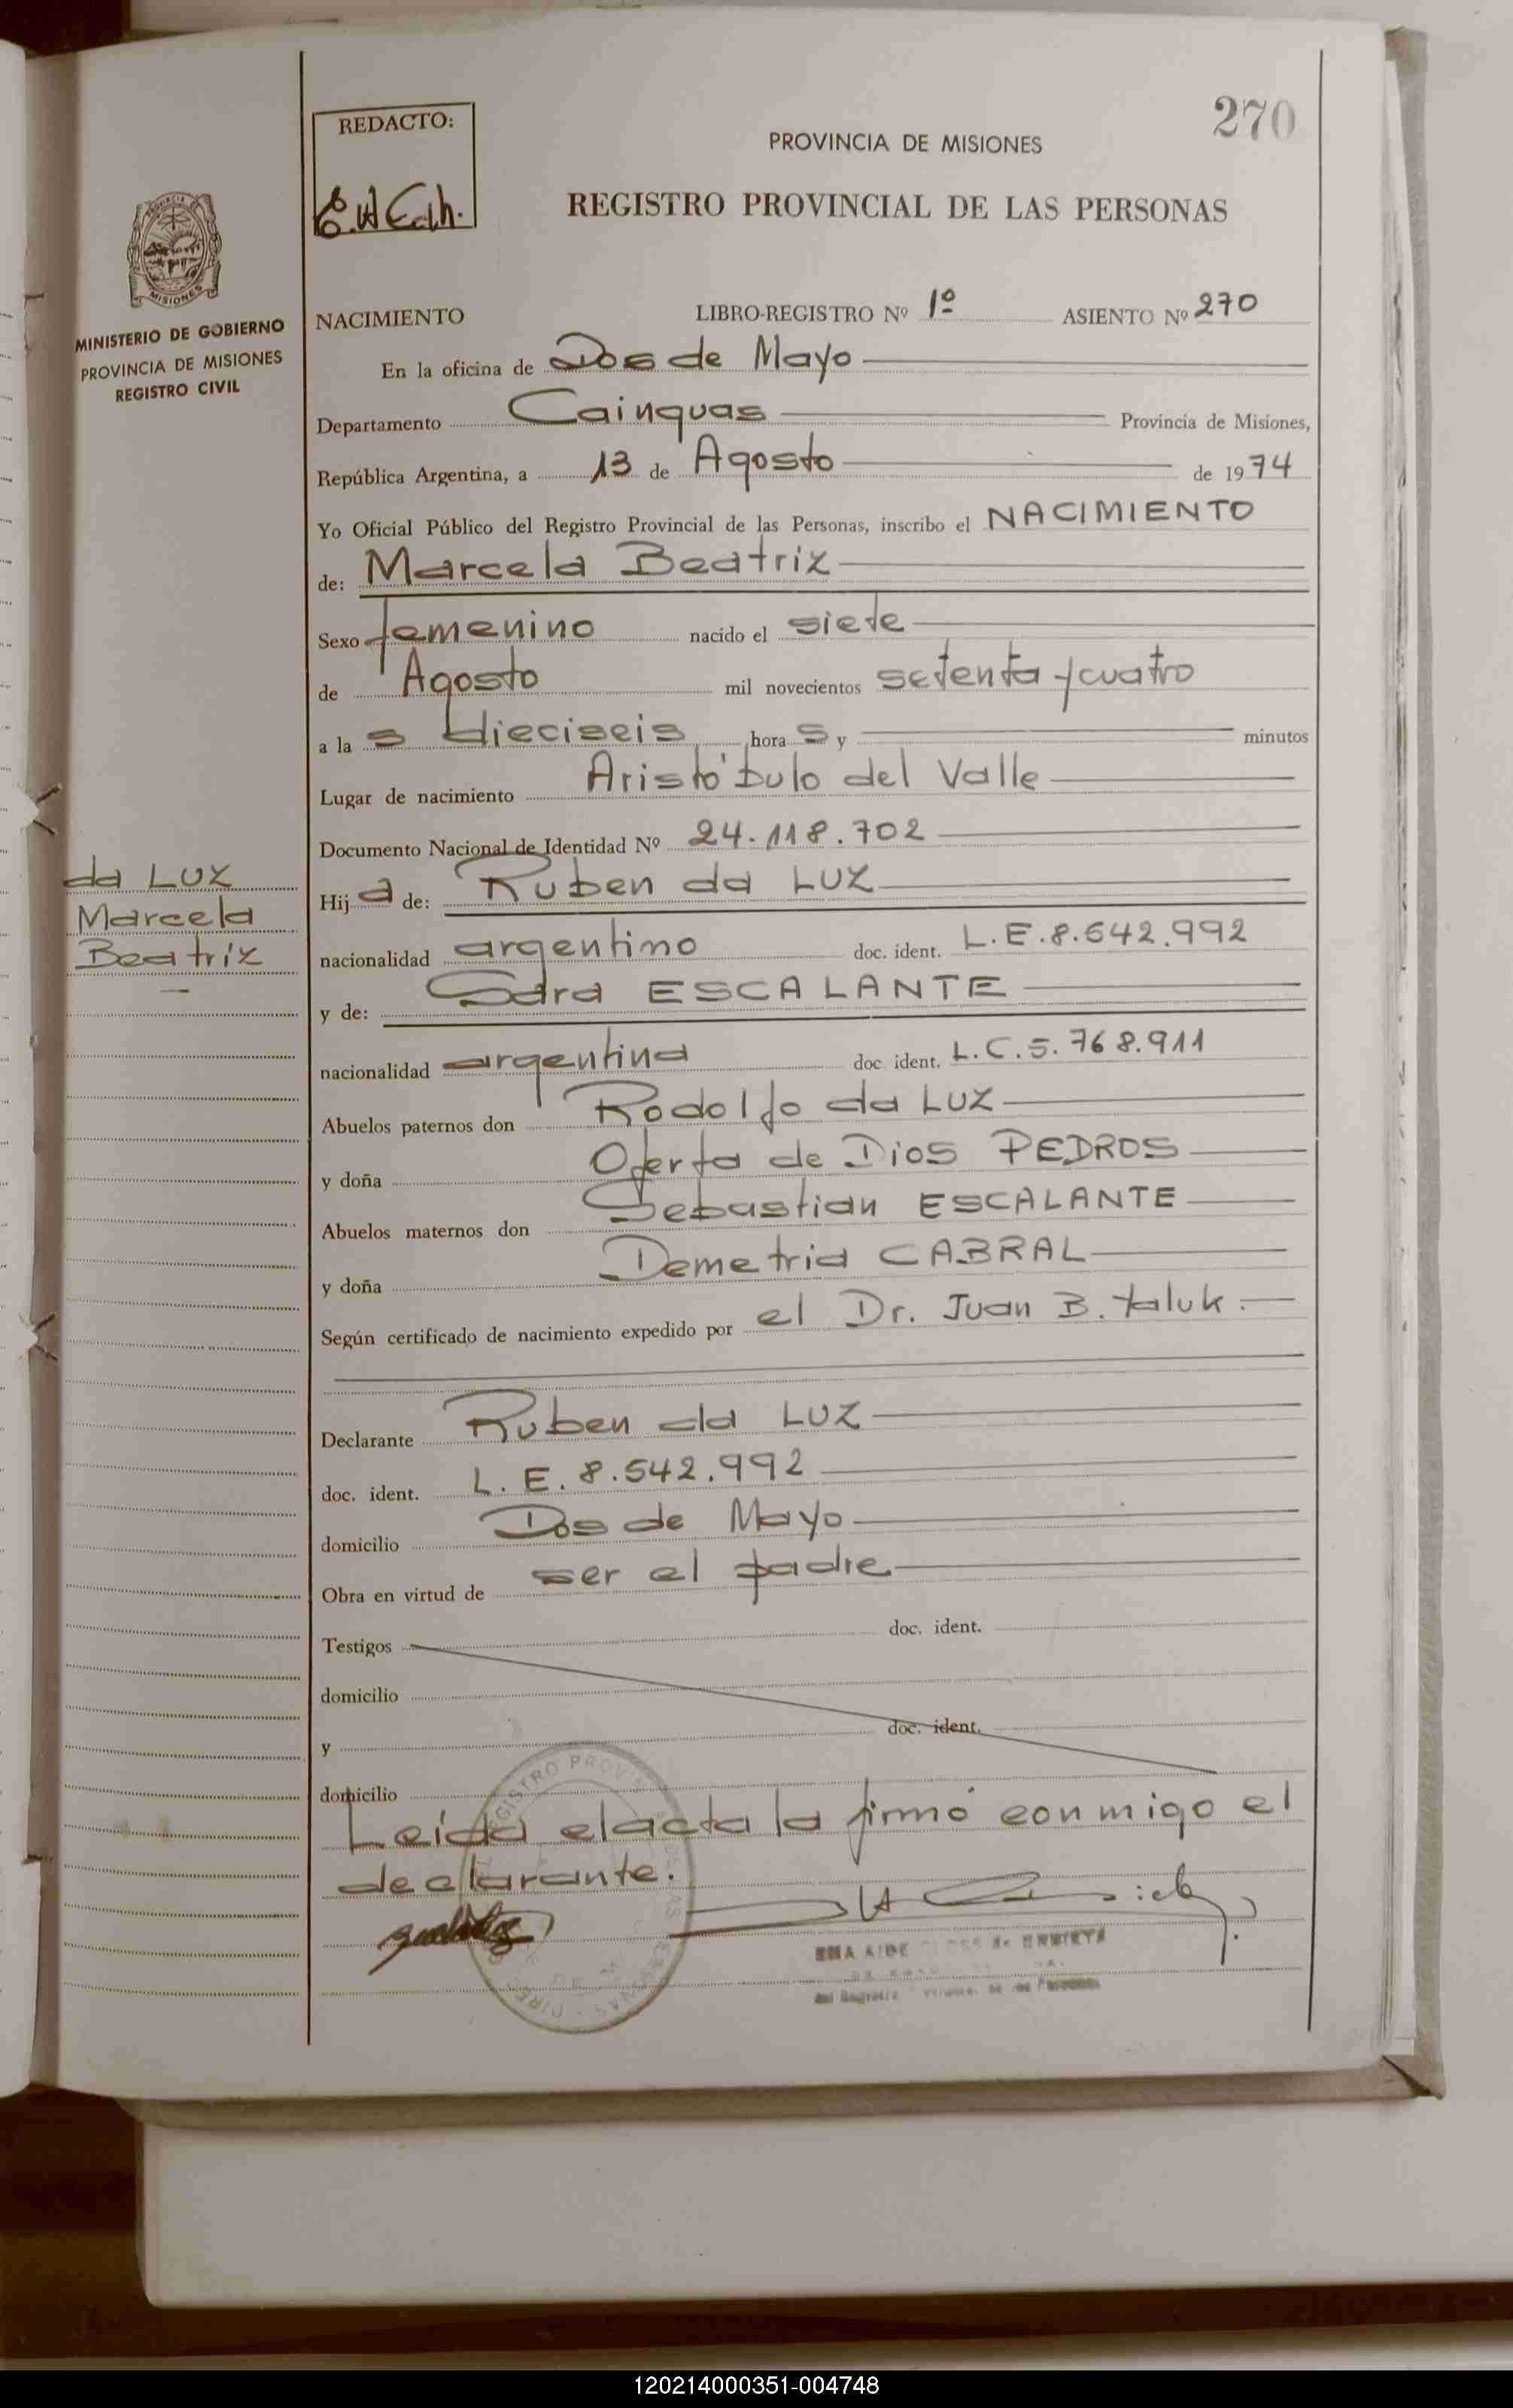 270
REDACTO:
PROVINCIA DE MISIONES
REGISTRO PROVINCIAL DE LAS PERSONAS
MISIONES
MINISTERIO DE GOBIERNO
PROVINCIA DE MISIONES
REGISTRO CIVIL
NACIMIENTO LIBRO-REGISTRO Nº 1º ASIENTO Nº 270
En la oficina de Dos de Mayo
Departamento Cainguas Provincia de Misiones,
República Argentina, a 13 de Agosto de 1974
Yo Oficial Público del Registro Provincial de las Personas, inscribo el NACIMIENTO
de: Marcela Beatriz
Sexo femenino nacido el siete
de Agosto mil novecientos setenta y cuatro
a la s dieciseis hora s y minutos
Lugar de nacimiento Aristóbulo del Valle
Documento Nacional de Identidad Nº 24.118.702
da LUZ
Marcela
Beatriz
Hij a de: Ruben da LUZ
nacionalidad argentino doc. ident. L.E.8.542.992
y de: Sara ESCALANTE
nacionalidad argentina doc. ident. L.C.5.768.911
Abuelos paternos don Rodolfo da LUZ
y doña Oferta de Dios PEDROS
Abuelos maternos don Sebastian ESCALANTE
y doña Demetria CABRAL
Según certificado de nacimiento expedido por el Dr. Juan B. Yaluk.
Declarante Ruben da LUZ
doc. ident. L. E. 8.542.992
domicilio Dos de Mayo
Obra en virtud de ser el padre
Testigos doc. ident.
domicilio
y doc. ident.
domicilio
Leida el acta la firmó conmigo el
declarante.
120214000351-004748